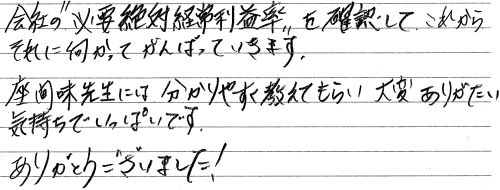 会社の"必要絶対経常利益率"を確認して これから
それに向かって がんばっていきます。
座間味先生には 分かりやすく教えてもらい 大変 ありがたい
気持ちでいっぱいです。
ありがとうございました!